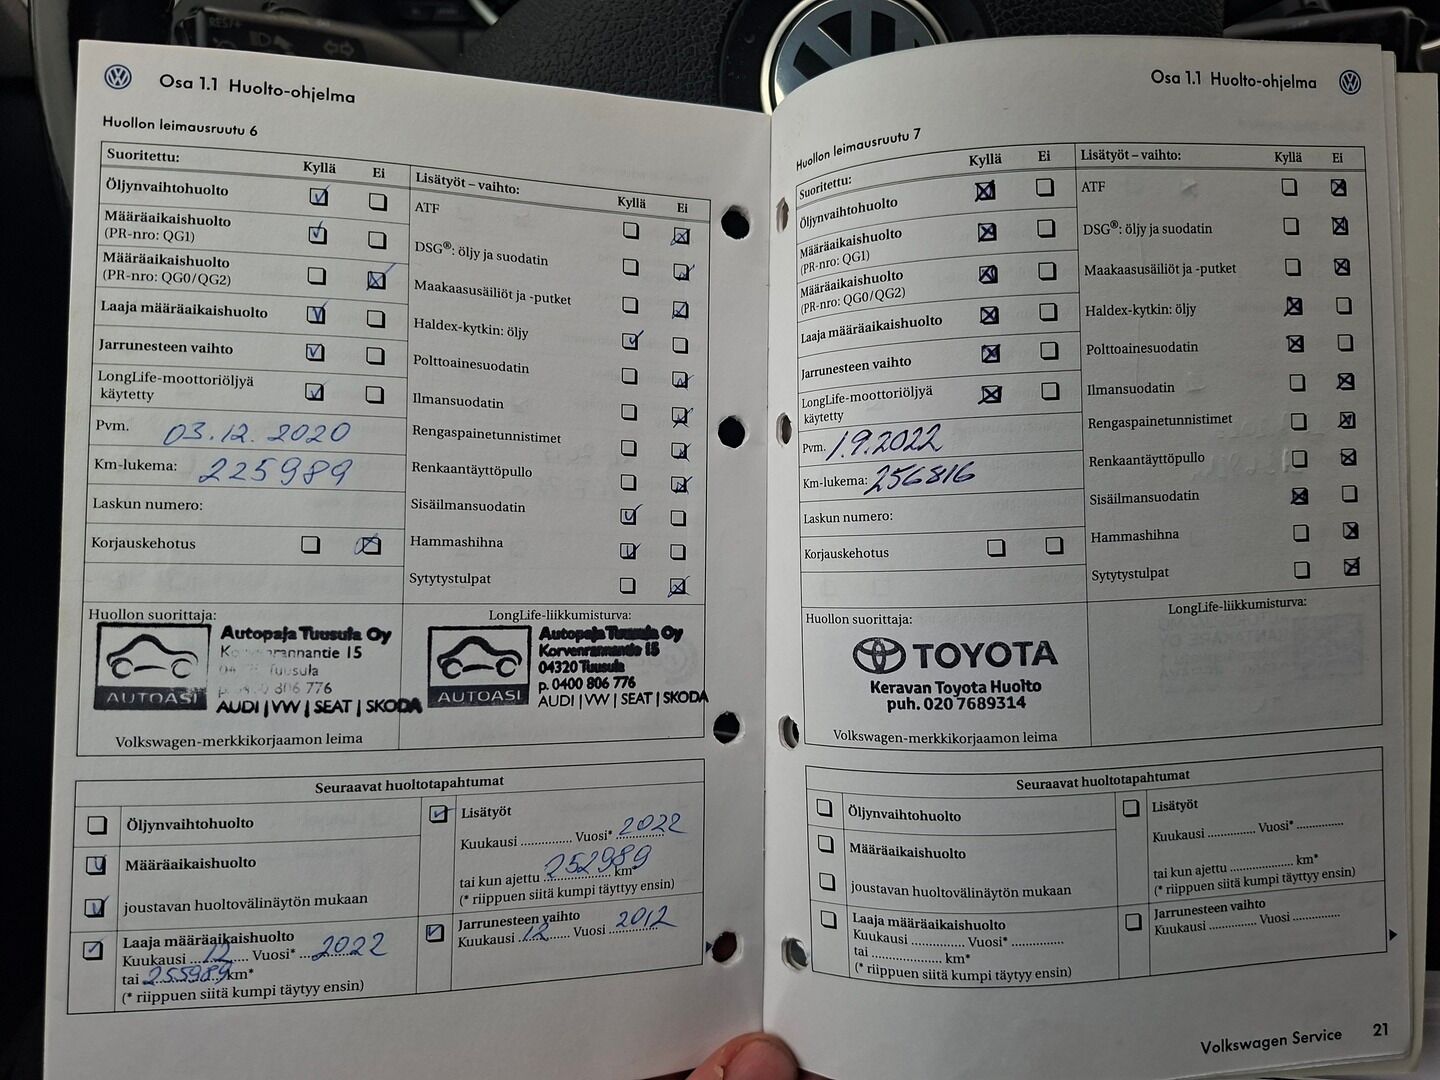 RES/+
Osa 1.1 Huolto-ohjelma
Huollon leimausruutu 6
Suoritettu: Kyllä Ei
Öljynvaihtohuolto
Määräaikaishuolto
(PR-nro: QG1)
Määräaikaishuolto
(PR-nro: QG0/QG2)
Laaja määräaikaishuolto
Jarrunesteen vaihto
LongLife-moottoriöljyä
käytetty
Pvm. 03.12.2020
Km-lukema: 225989
Laskun numero:
Korjauskehotus
Lisätyöt – vaihto: Kyllä Ei
ATF
DSG®: öljy ja suodatin
Maakaasusäiliöt ja -putket
Haldex-kytkin: öljy
Polttoainesuodatin
Ilmansuodatin
Rengaspainetunnistimet
Renkaantäyttöpullo
Sisäilmansuodatin
Hammashihna
Sytytystulpat
Huollon suorittaja:
AUTOASI
Autopaja Tuusula Oy
Korvenrannantie 15
Tuusula
806 776
AUDI | VW | SEAT | SKODA
Volkswagen-merkkikorjaamon leima
LongLife-liikkumisturva:
AUTOASI
Autopaja Tuusula Oy
Korvenrannantie 15
04320 Tuusula
p. 0400 806 776
AUDI | VW | SEAT | SKODA
Seuraavat huoltotapahtumat
Öljynvaihtohuolto
Määräaikaishuolto
joustavan huoltovälinäytön mukaan
Laaja määräaikaishuolto
Kuukausi 12 Vuosi* 2022
tai 255989 km*
(* riippuen siitä kumpi täytyy ensin)
Lisätyöt
Kuukausi ............... Vuosi* 2022
tai kun ajettu 252989 km*
(* riippuen siitä kumpi täytyy ensin)
Jarrunesteen vaihto
Kuukausi 12 Vuosi 2012
Osa 1.1 Huolto-ohjelma
Huollon leimausruutu 7
Suoritettu: Kyllä Ei
Öljynvaihtohuolto
Määräaikaishuolto
(PR-nro: QG1)
Määräaikaishuolto
(PR-nro: QG0/QG2)
Laaja määräaikaishuolto
Jarrunesteen vaihto
LongLife-moottoriöljyä
käytetty
Pvm. 1.9.2022
Km-lukema: 256816
Laskun numero:
Korjauskehotus
Lisätyöt – vaihto: Kyllä Ei
ATF
DSG®: öljy ja suodatin
Maakaasusäiliöt ja -putket
Haldex-kytkin: öljy
Polttoainesuodatin
Ilmansuodatin
Rengaspainetunnistimet
Renkaantäyttöpullo
Sisäilmansuodatin
Hammashihna
Sytytystulpat
Huollon suorittaja:
TOYOTA
Keravan Toyota Huolto
puh. 020 7689314
Volkswagen-merkkikorjaamon leima
LongLife-liikkumisturva:
Seuraavat huoltotapahtumat
Öljynvaihtohuolto
Määräaikaishuolto
joustavan huoltovälinäytön mukaan
Laaja määräaikaishuolto
Kuukausi ............... Vuosi* ...............
tai .................... km*
(* riippuen siitä kumpi täytyy ensin)
Lisätyöt
Kuukausi ............... Vuosi* ...............
tai kun ajettu .................. km*
(* riippuen siitä kumpi täytyy ensin)
Jarrunesteen vaihto
Kuukausi .............. Vuosi ...............
Volkswagen Service 21